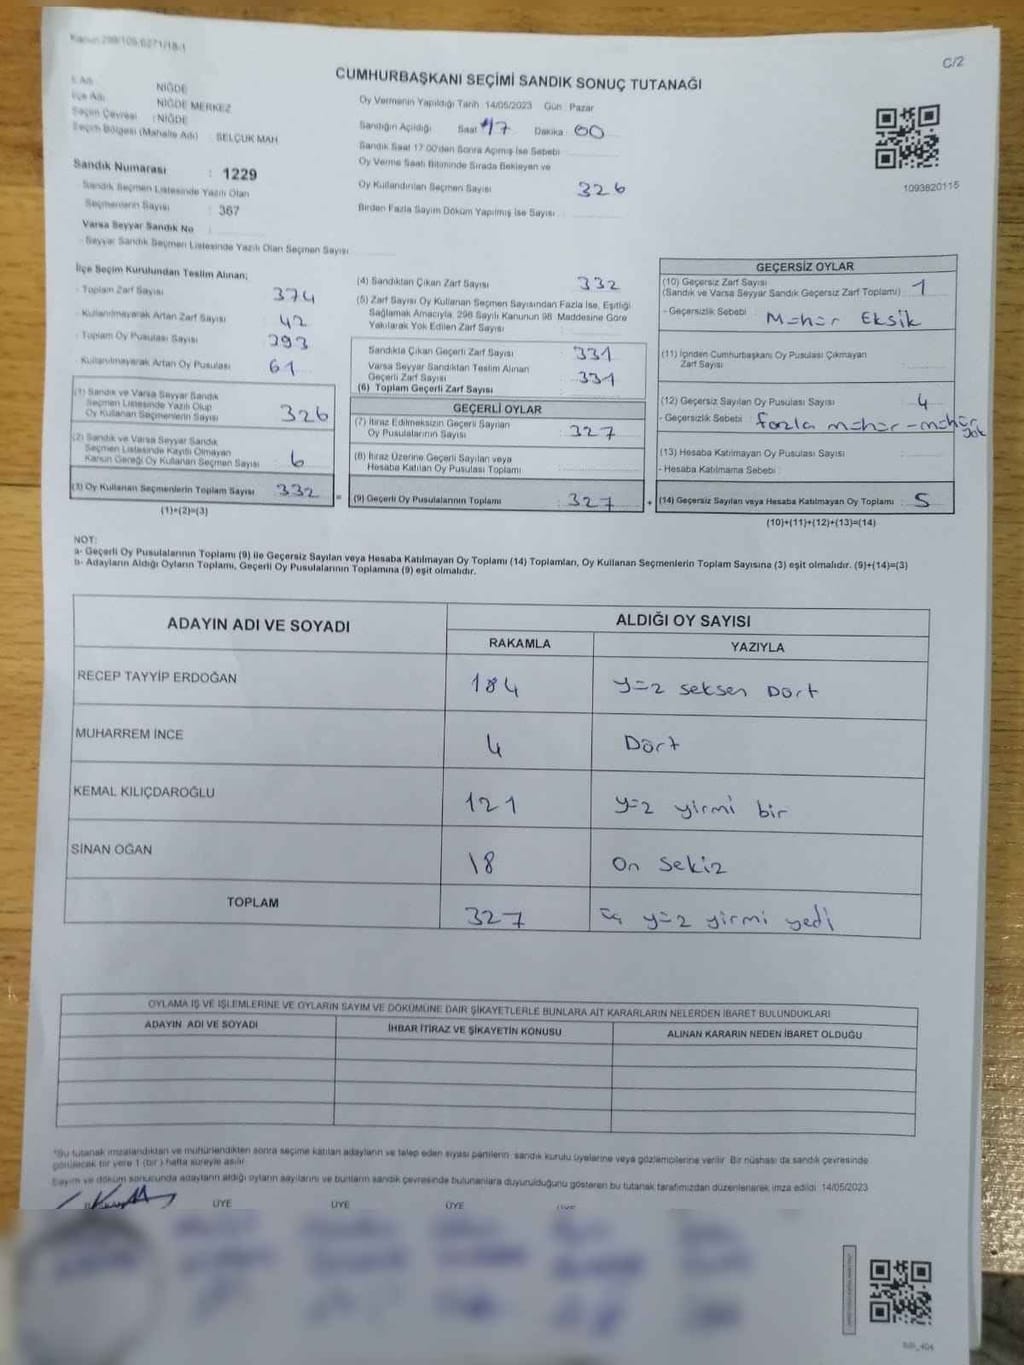 Kanun:298/105,6271/18-1
C/2
CUMHURBAŞKANI SEÇİMİ SANDIK SONUÇ TUTANAĞI
İl Adı : NİĞDE
İlçe Adı : NİĞDE MERKEZ
Seçim Çevresi : NİĞDE
Seçim Bölgesi (Mahalle Adı) : SELÇUK MAH
Sandık Numarası : 1229
Sandık Seçmen Listesinde Yazılı Olan
Seçmenlerin Sayısı : 367
Varsa Seyyar Sandık No :
- Seyyar Sandık Seçmen Listesinde Yazılı Olan Seçmen Sayısı
Oy Vermenin Yapıldığı Tarih 14/05/2023 Gün : Pazar
Sandığın Açıldığı Saat 17 Dakika 00
Sandık Saat 17.00'den Sonra Açılmış İse Sebebi
Oy Verme Saati Bitiminde Sırada Bekleyen ve
Oy Kullandırılan Seçmen Sayısı 326
Birden Fazla Sayım Döküm Yapılmış İse Sayısı
1093820115
İlçe Seçim Kurulundan Teslim Alınan;
- Toplam Zarf Sayısı 374
- Kullanılmayarak Artan Zarf Sayısı 42
- Toplam Oy Pusulası Sayısı 393
- Kullanılmayarak Artan Oy Pusulası 61
(1) Sandık ve Varsa Seyyar Sandık
Seçmen Listesinde Yazılı Olup
Oy Kullanan Seçmenlerin Sayısı 326
(2) Sandık ve Varsa Seyyar Sandık
Seçmen Listesinde Kayıtlı Olmayan
Kanun Gereği Oy Kullanan Seçmen Sayısı 6
(3) Oy Kullanan Seçmenlerin Toplam Sayısı 332 =
(1)+(2)=(3)
(4) Sandıktan Çıkan Zarf Sayısı 332
(5) Zarf Sayısı Oy Kullanan Seçmen Sayısından Fazla İse, Eşitliği
Sağlamak Amacıyla, 298 Sayılı Kanunun 98. Maddesine Göre
Yakılarak Yok Edilen Zarf Sayısı :
Sandıkta Çıkan Geçerli Zarf Sayısı 331
Varsa Seyyar Sandıktan Teslim Alınan
Geçerli Zarf Sayısı 331
(6) Toplam Geçerli Zarf Sayısı
GEÇERLİ OYLAR
(7) İtiraz Edilmeksizin Geçerli Sayılan
Oy Pusulalarının Sayısı 327
(8) İtiraz Üzerine Geçerli Sayılan veya
Hesaba Katılan Oy Pusulası Toplamı
(9) Geçerli Oy Pusulalarının Toplamı 327 +
GEÇERSİZ OYLAR
(10) Geçersiz Zarf Sayısı
(Sandık ve Varsa Seyyar Sandık Geçersiz Zarf Toplamı) 1
- Geçersizlik Sebebi : Mühür Eksik
(11) İçinden Cumhurbaşkanı Oy Pusulası Çıkmayan
Zarf Sayısı
(12) Geçersiz Sayılan Oy Pusulası Sayısı 4
- Geçersizlik Sebebi : fazla mühür - mühür yok
(13) Hesaba Katılmayan Oy Pusulası Sayısı
- Hesaba Katılmama Sebebi
(14) Geçersiz Sayılan veya Hesaba Katılmayan Oy Toplamı : 5
(10)+(11)+(12)+(13)=(14)
NOT:
a- Geçerli Oy Pusulalarının Toplamı (9) ile Geçersiz Sayılan veya Hesaba Katılmayan Oy Toplamı (14) Toplamları, Oy Kullanan Seçmenlerin Toplam Sayısına (3) eşit olmalıdır. (9)+(14)=(3)
b- Adayların Aldığı Oyların Toplamı, Geçerli Oy Pusulalarının Toplamına (9) eşit olmalıdır.
ADAYIN ADI VE SOYADI ALDIĞI OY SAYISI
RAKAMLA YAZIYLA
RECEP TAYYİP ERDOĞAN 184 yüz seksen Dört
MUHARREM İNCE 4 Dört
KEMAL KILIÇDAROĞLU 121 yüz yirmi bir
SİNAN OĞAN 18 On Sekiz
TOPLAM 327 üç yüz yirmi yedi
OYLAMA İŞ VE İŞLEMLERİNE VE OYLARIN SAYIM VE DÖKÜMÜNE DAİR ŞİKAYETLERLE BUNLARA AİT KARARLARIN NELERDEN İBARET BULUNDUKLARI
ADAYIN ADI VE SOYADI İHBAR İTİRAZ VE ŞİKAYETİN KONUSU ALINAN KARARIN NEDEN İBARET OLDUĞU
*Bu tutanak imzalandıktan ve mühürlendikten sonra seçime katılan adayların ve talep eden siyasi partilerin, sandık kurulu üyelerine veya gözlemcilerine verilir. Bir nüshası da sandık çevresinde
görülecek bir yere 1 (bir) hafta süreyle asılır.
Sayım ve döküm sonucunda adayların aldığı oyların sayılarını ve bunların sandık çevresinde bulunanlara duyurulduğunu gösteren bu tutanak tarafımızdan düzenlenerek imza edildi. 14/05/2023
ÜYE ÜYE ÜYE ÜYE